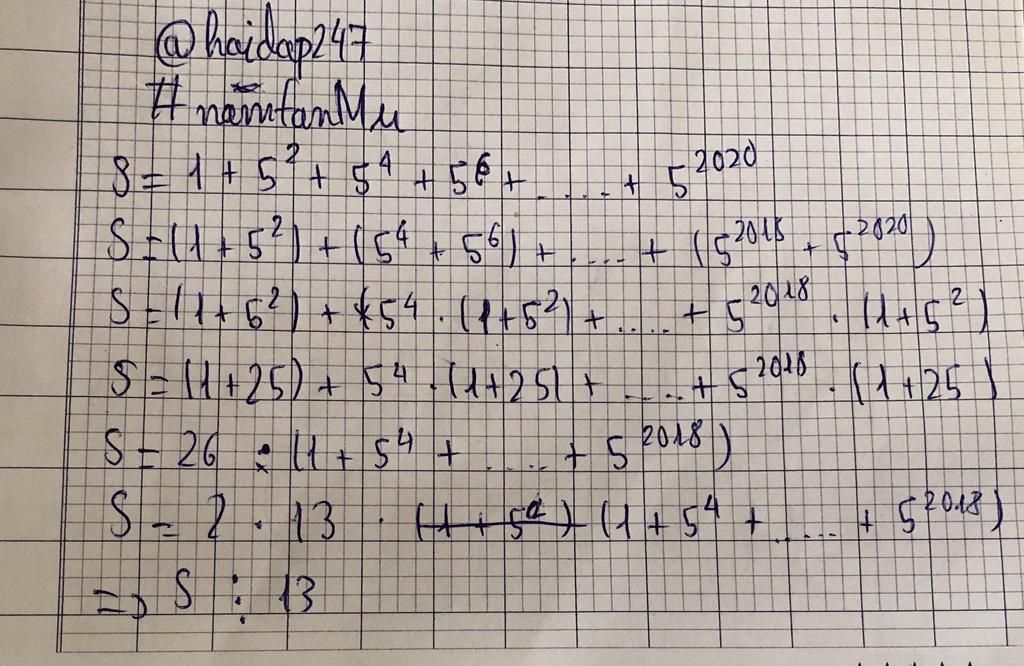 @haidap247
#nămfanMu
S = 1 + 5² + 5⁴ + 5⁶ + ..... + 5²⁰²⁰
S = (1 + 5²) + (5⁴ + 5⁶) + ..... + (5²⁰¹⁸ + 5²⁰²⁰)
S = (1 + 5²) + 5⁴ . (1 + 5²) + ..... + 5²⁰¹⁸ . (1 + 5²)
S = (1 + 25) + 5⁴ . (1 + 25) + ..... + 5²⁰¹⁸ . (1 + 25)
S = 26 . (1 + 5⁴ + ..... + 5²⁰¹⁸)
S = 2 . 13 . (1 + 5⁴ + ..... + 5²⁰¹⁸)
=> S ⋮ 13